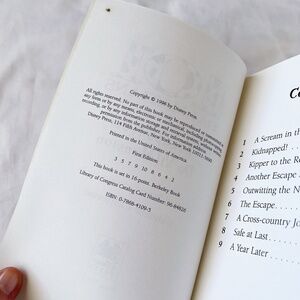 Copyright © 1996 by Disney Press.
All rights reserved. No part of this book may be reproduced or transmitted in
any form or by any means, electronic or mechanical, including photocopying,
recording, or by any information storage and retrieval system, without written
permission from the publisher. For information address
Disney Press, 114 Fifth Avenue, New York, New York 10011-5690.
Printed in the United States of America.
First Edition
3 5 7 9 10 8 6 4 2
This book is set in 16-point Berkeley Book
Library of Congress Catalog Card Number: 96-84826
ISBN: 0-7868-4109-5
Co
1 A Scream in th
2 Kidnapped!
3 Kipper to the Re
4 Another Escape
5 Outwitting the N
6 The Escape
7 A Cross-country Jo
8 Safe at Last
9 A Year Later